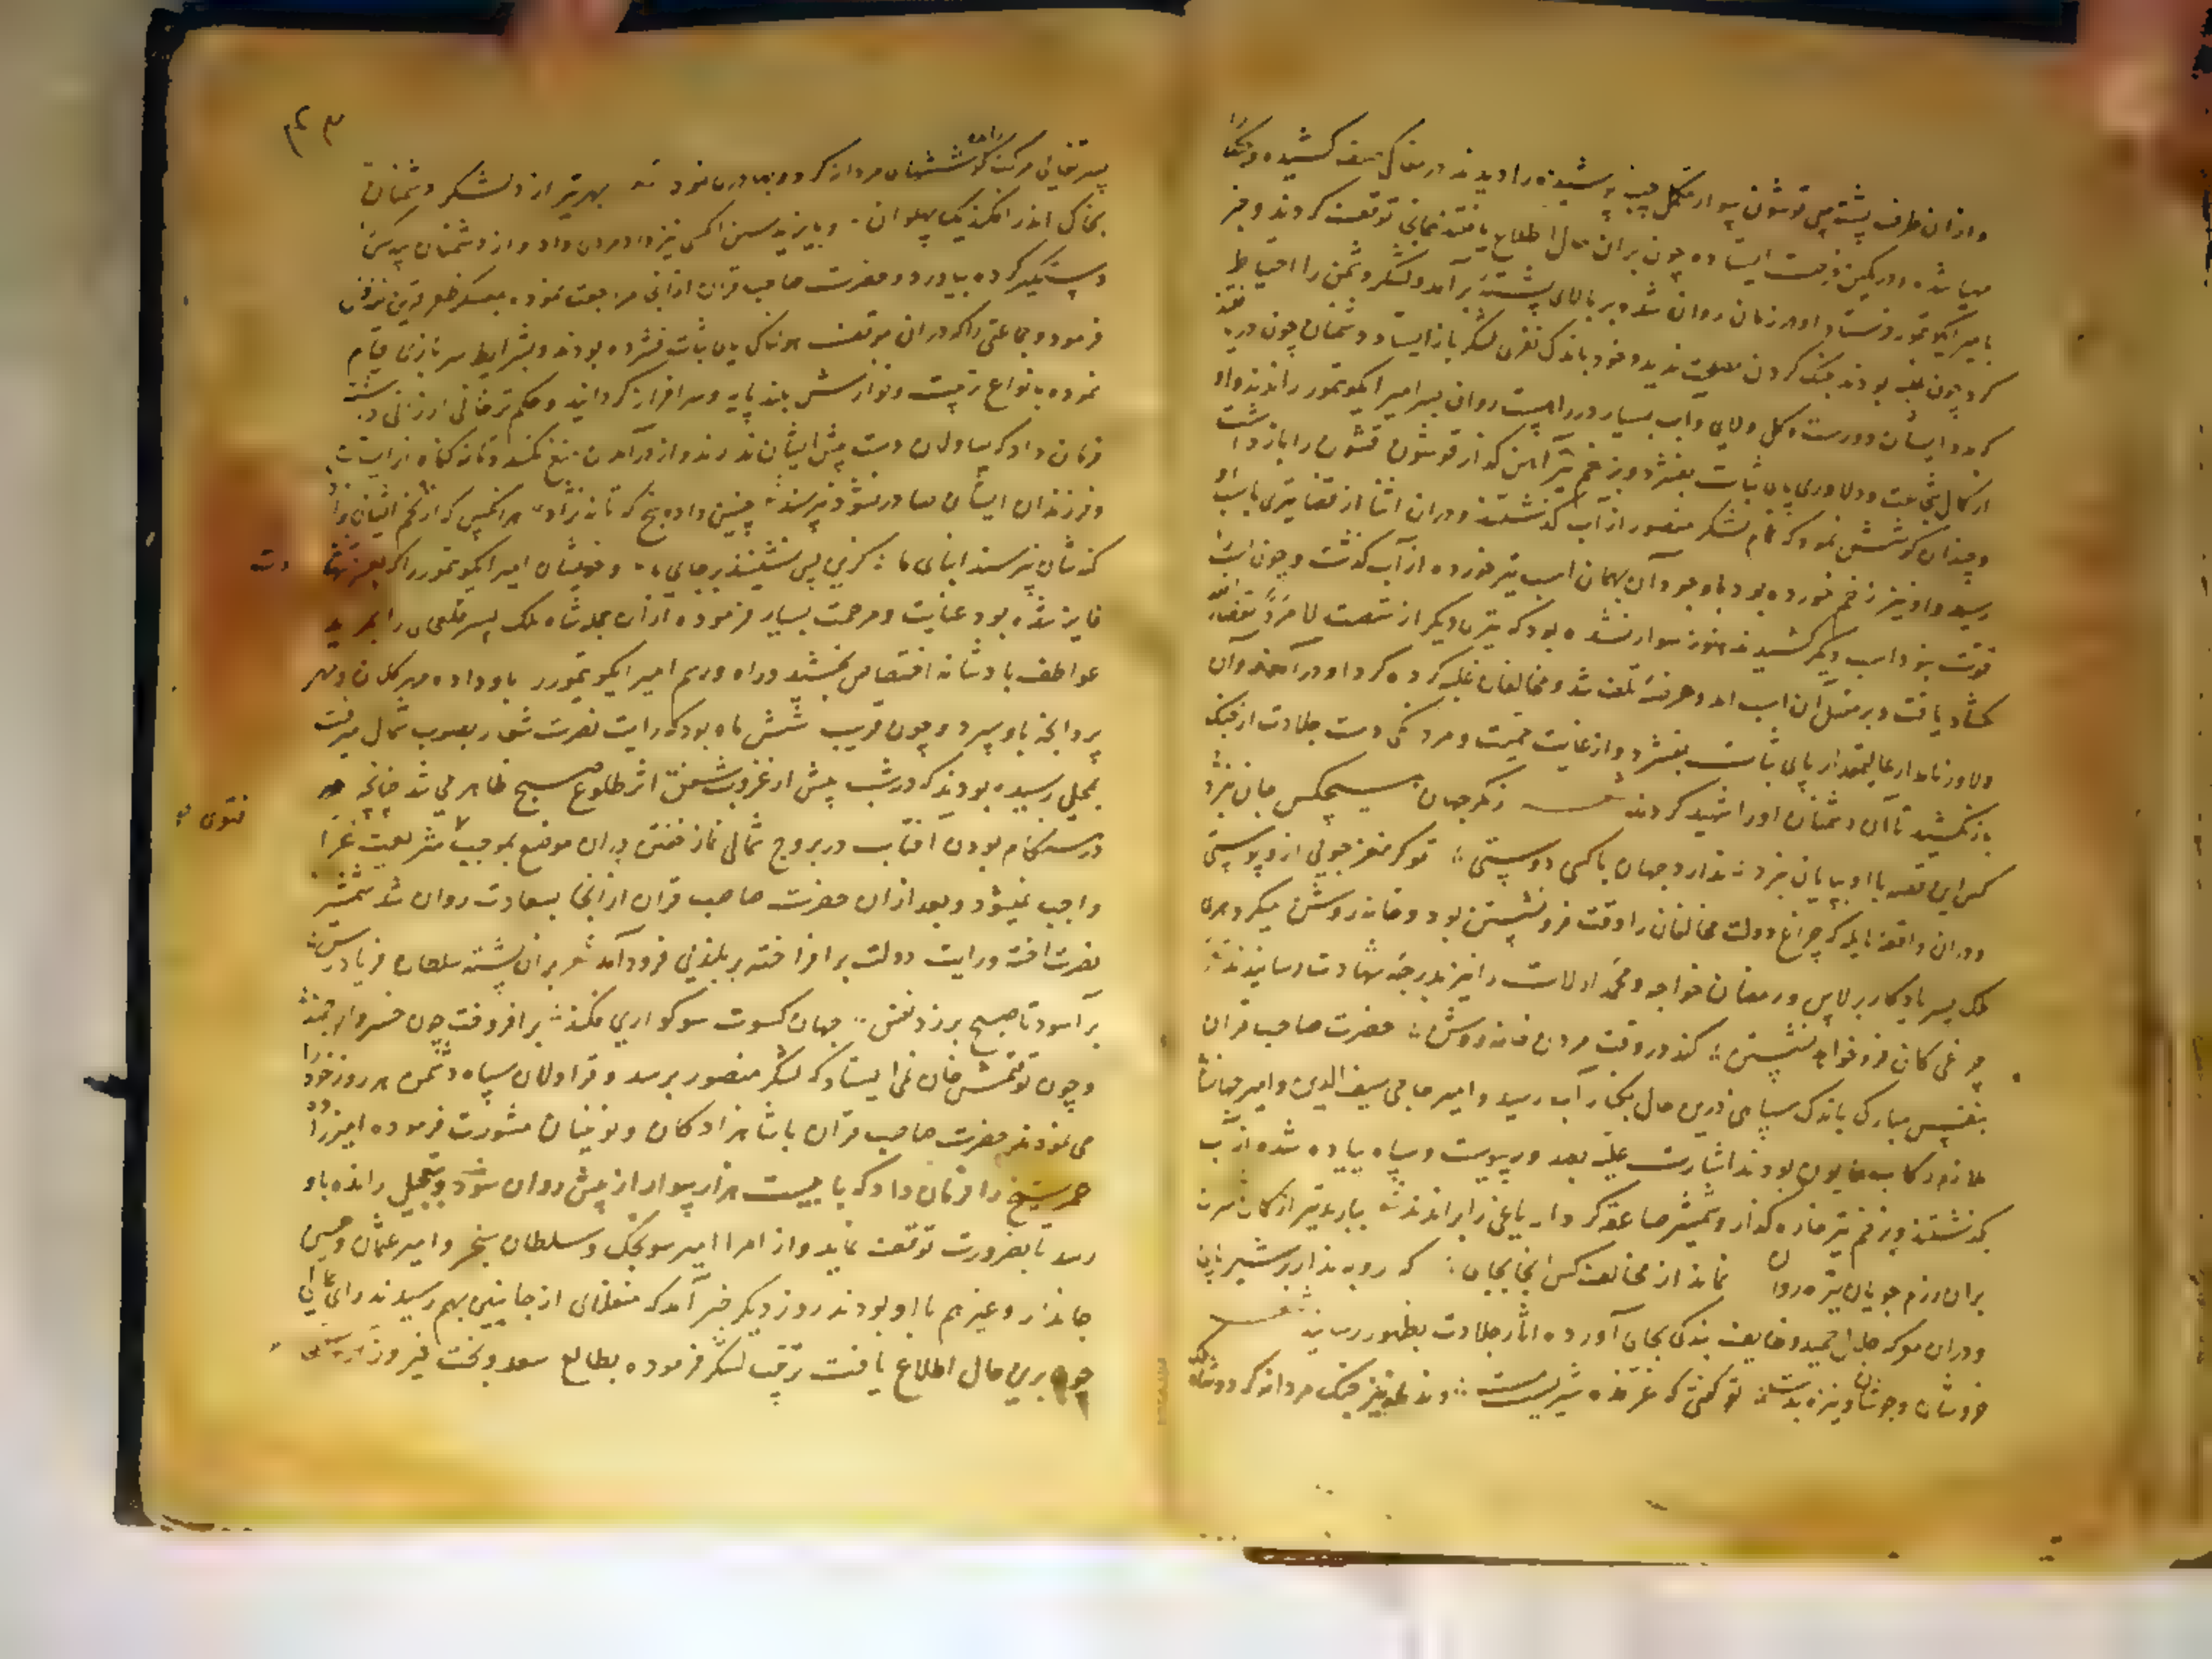 وازان طرف پشته سی قوشون سوار مکمل جیبه پوشیده را دیدند در مغاکی صف کشیده و جنگ را
مهیا شده و در کمین فرصت ایستاده چون بران حال اطلاع یافتند بجای توقف کردند و خبر
بامیر ایکو تمور فرستاد او در زمان روان شد و بر بالای پشته برآمد و لشکر دشمن را احتیاط
کرد چون غلبه بودند جنگ کردن مصلحت ندید و خود باندک نفری لشکر بازایستاد و دشمنان چون دریافتند
که و ایشان دو رست و کل ولای و آب بسیار در راهست روان بسر امیر ایکو تمور راندند و او
از کمال شجاعت و دلاوری پای ثبات بفشرد و بزخم تیر آهن گذار قوشون قشون را بازداشت
و چندان کوشش نمود که تمام لشکر منصور از آب گذشتند و دران اثنا از قضا تیری باسب او
رسید و او نیز زخم خورده بود باوجود آن بهمان اسب تیر خورده از آب گذشت و چون اسب
قوت نبود اسب دیگر کشیدند هنوز سوار نشده بود که تیری دیگر از شصت لا مرد لقضائه
گشاد یافت و بر مقتل آن اسب آمد و هر فته تلف شد و مخالفان غلبه کرده کرد او درآمدند و آن
دلاور نامدار عالیمقدار پای ثبات بفشرد و از غایت حمیت و مردانگی دست جلادت از جنگ
باز نکشید تا آن دشمنان او را شهید کردند شعر ز کر جهان هیچکس جان نبرد
کس این قصه با او بپایان نبرد ندارد جهان با کسی دوستی تو کر مغز جویی ازو پوستی
و دران واقعه هایله که چراغ دولت مخالفان را وقت فرونشستن بود و خانه روشن میکرد هری
ملک پسر یادکار برلاس و رمضان خواجه و محمد ارلات را نیز بدرجه شهادت رسانیدند
چراغی کان فرو خواهد نشستن کند در وقت مردن خانه روشن حضرت صاحب قران
بنفس مبارک باندک سپاهی درین حال بکنار آب رسید و امیر حاجی سیف الدین و امیر جهانشاه
ملازم رکاب همایون بودند اشارت علیه بصد و رپیوست و سپاه پیاده شده از آب
بگذشتند و بزخم تیر خاره گذار و شمشیر صاعقه کردار یاغی را براندند ببارید تیر از کمان سران
بران رزم جویان تیره روان نماند از مخالف کس آنجا بجان که روبه ندارد بر شیر پای
و دران معرکه جلال حمید وظایف بندگی بجای آورده آثار جلادت بظهور رسانید شعر
خروشان و جوشان و نیزه بدست تو گفتی که غرنده شیریست و نمدانه نیز جنگ مردانه کرد و شاه ملک
۴۳
پسر تغای مرکن کوششهای مردانه کرد و بهادری نمود بهر تیر از لشکر دشمنان
بخاک اندر افکند یک پهلوان و بایزید حسن الکی نیز داد مردی داد و از دشمنان سه کس
دستگیر کرده بیاورد و حضرت صاحب قران از آنجا مراجعت نموده بمعسکر ظفر قرین نزول
فرمود و جماعتی را که دران موقف هولناک پای ثبات فشرده بودند و بشرایط سربازی قیام
نموده بانواع تربیت و نوازش بلند پایه و سرافراز گردانید و حکم ترخانی ارزانی داشت
فرمان داد که یساولان دست پیش ایشان ندارند و از درآمدن منع نکنند و تا نه گناه از ایشان
و فرزندان ایشان صادر نشود نپرسند چنین داد پاسخ که تا نه نژاد هر آنکس که از تخم ایشان بزاد
گنه شان نپرسند ابنای ما کزین پس نشینند بر جای ما و خویشان امیر ایکو تمور را که بعز شهادت
فایز شده بود عنایت و مرحمت بسیار فرموده از آن جمله شاه ملک پسر قلغای را بمزید
عواطف پادشاهانه اختصاص بخشید و راه و رسم امیر ایکو تمور را باو داده مهر کلان و مهر
پروانجه باو سپرد و چون قریب شش ماه بود که رایت نصرت شعار بصوب شمال میرفت
بمحلی رسیده بودند که در شب پیش از غروب شفق اثر طلوع صبح ظاهر می شد چنانچه
در هنگام بودن آفتاب در بروج شمالی نماز خفتن دران موضع بموجب فتوی شریعت غرا
واجب نمیشود و بعد ازان حضرت صاحب قران از آنجا بسعادت روان شد شمشیر
نصرت آخته و رایت دولت برافراخته بر بلندی فرود آمد شعر بران پشته سلطان فریادرس
برآسود تا صبح برزد نفس جهان کسوت سوگواری فکند برافروخت چون خسرو ارجمند
و چون توقتمش خان نمی ایستاد که لشکر منصور برسد و قراولان سپاه دشمن هر روز خود را
می نمودند حضرت صاحب قران با شاهزادگان و نوئینان مشورت فرموده امیرزاده
عمر شیخ را فرمان داد که با بیست هزار سوار از پیش روان شود و بتعجیل رانده باو
رسد تا بضرورت توقف نماید و از امرا امیر سونجک و سلطان سنجر و امیر عثمان و حسن
جاندار و غیرهم با او بودند روز دیگر خبر آمد که منغلای از جانبین بهم رسیدند
چون برین حال اطلاع یافت ترتیب لشکر فرموده بطالع سعد و بخت فیروز